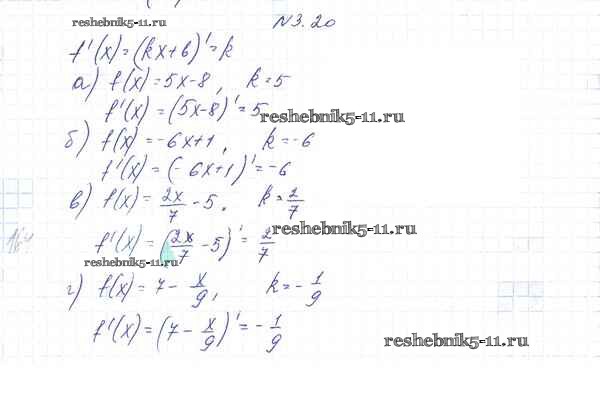 reshebnik5-11.ru
N3.20
f'(x)=(kx+b)'=k
а) f(x)=5x-8, k=5
f'(x)=(5x-8)'=5
reshebnik5-11.ru
б) f(x)=-6x+1, k=-6
f'(x)=(-6x+1)'=-6
в) f(x)=2x/7-5. k=2/7
reshebnik5-11.ru
f'(x)=(2x/7-5)'=2/7
reshebnik5-11.ru
г) f(x)=7-x/9, k=-1/9
f'(x)=(7-x/9)'=-1/9
reshebnik5-11.ru